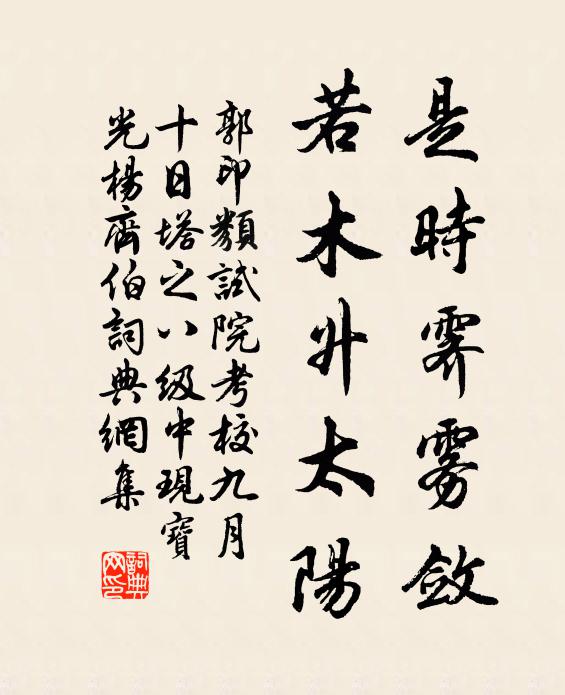 是時霽霧斂
若木升太陽
郭印類試院考校九月
十日塔之八級中現寶
光楊齊伯詞典網集
詞典
网印